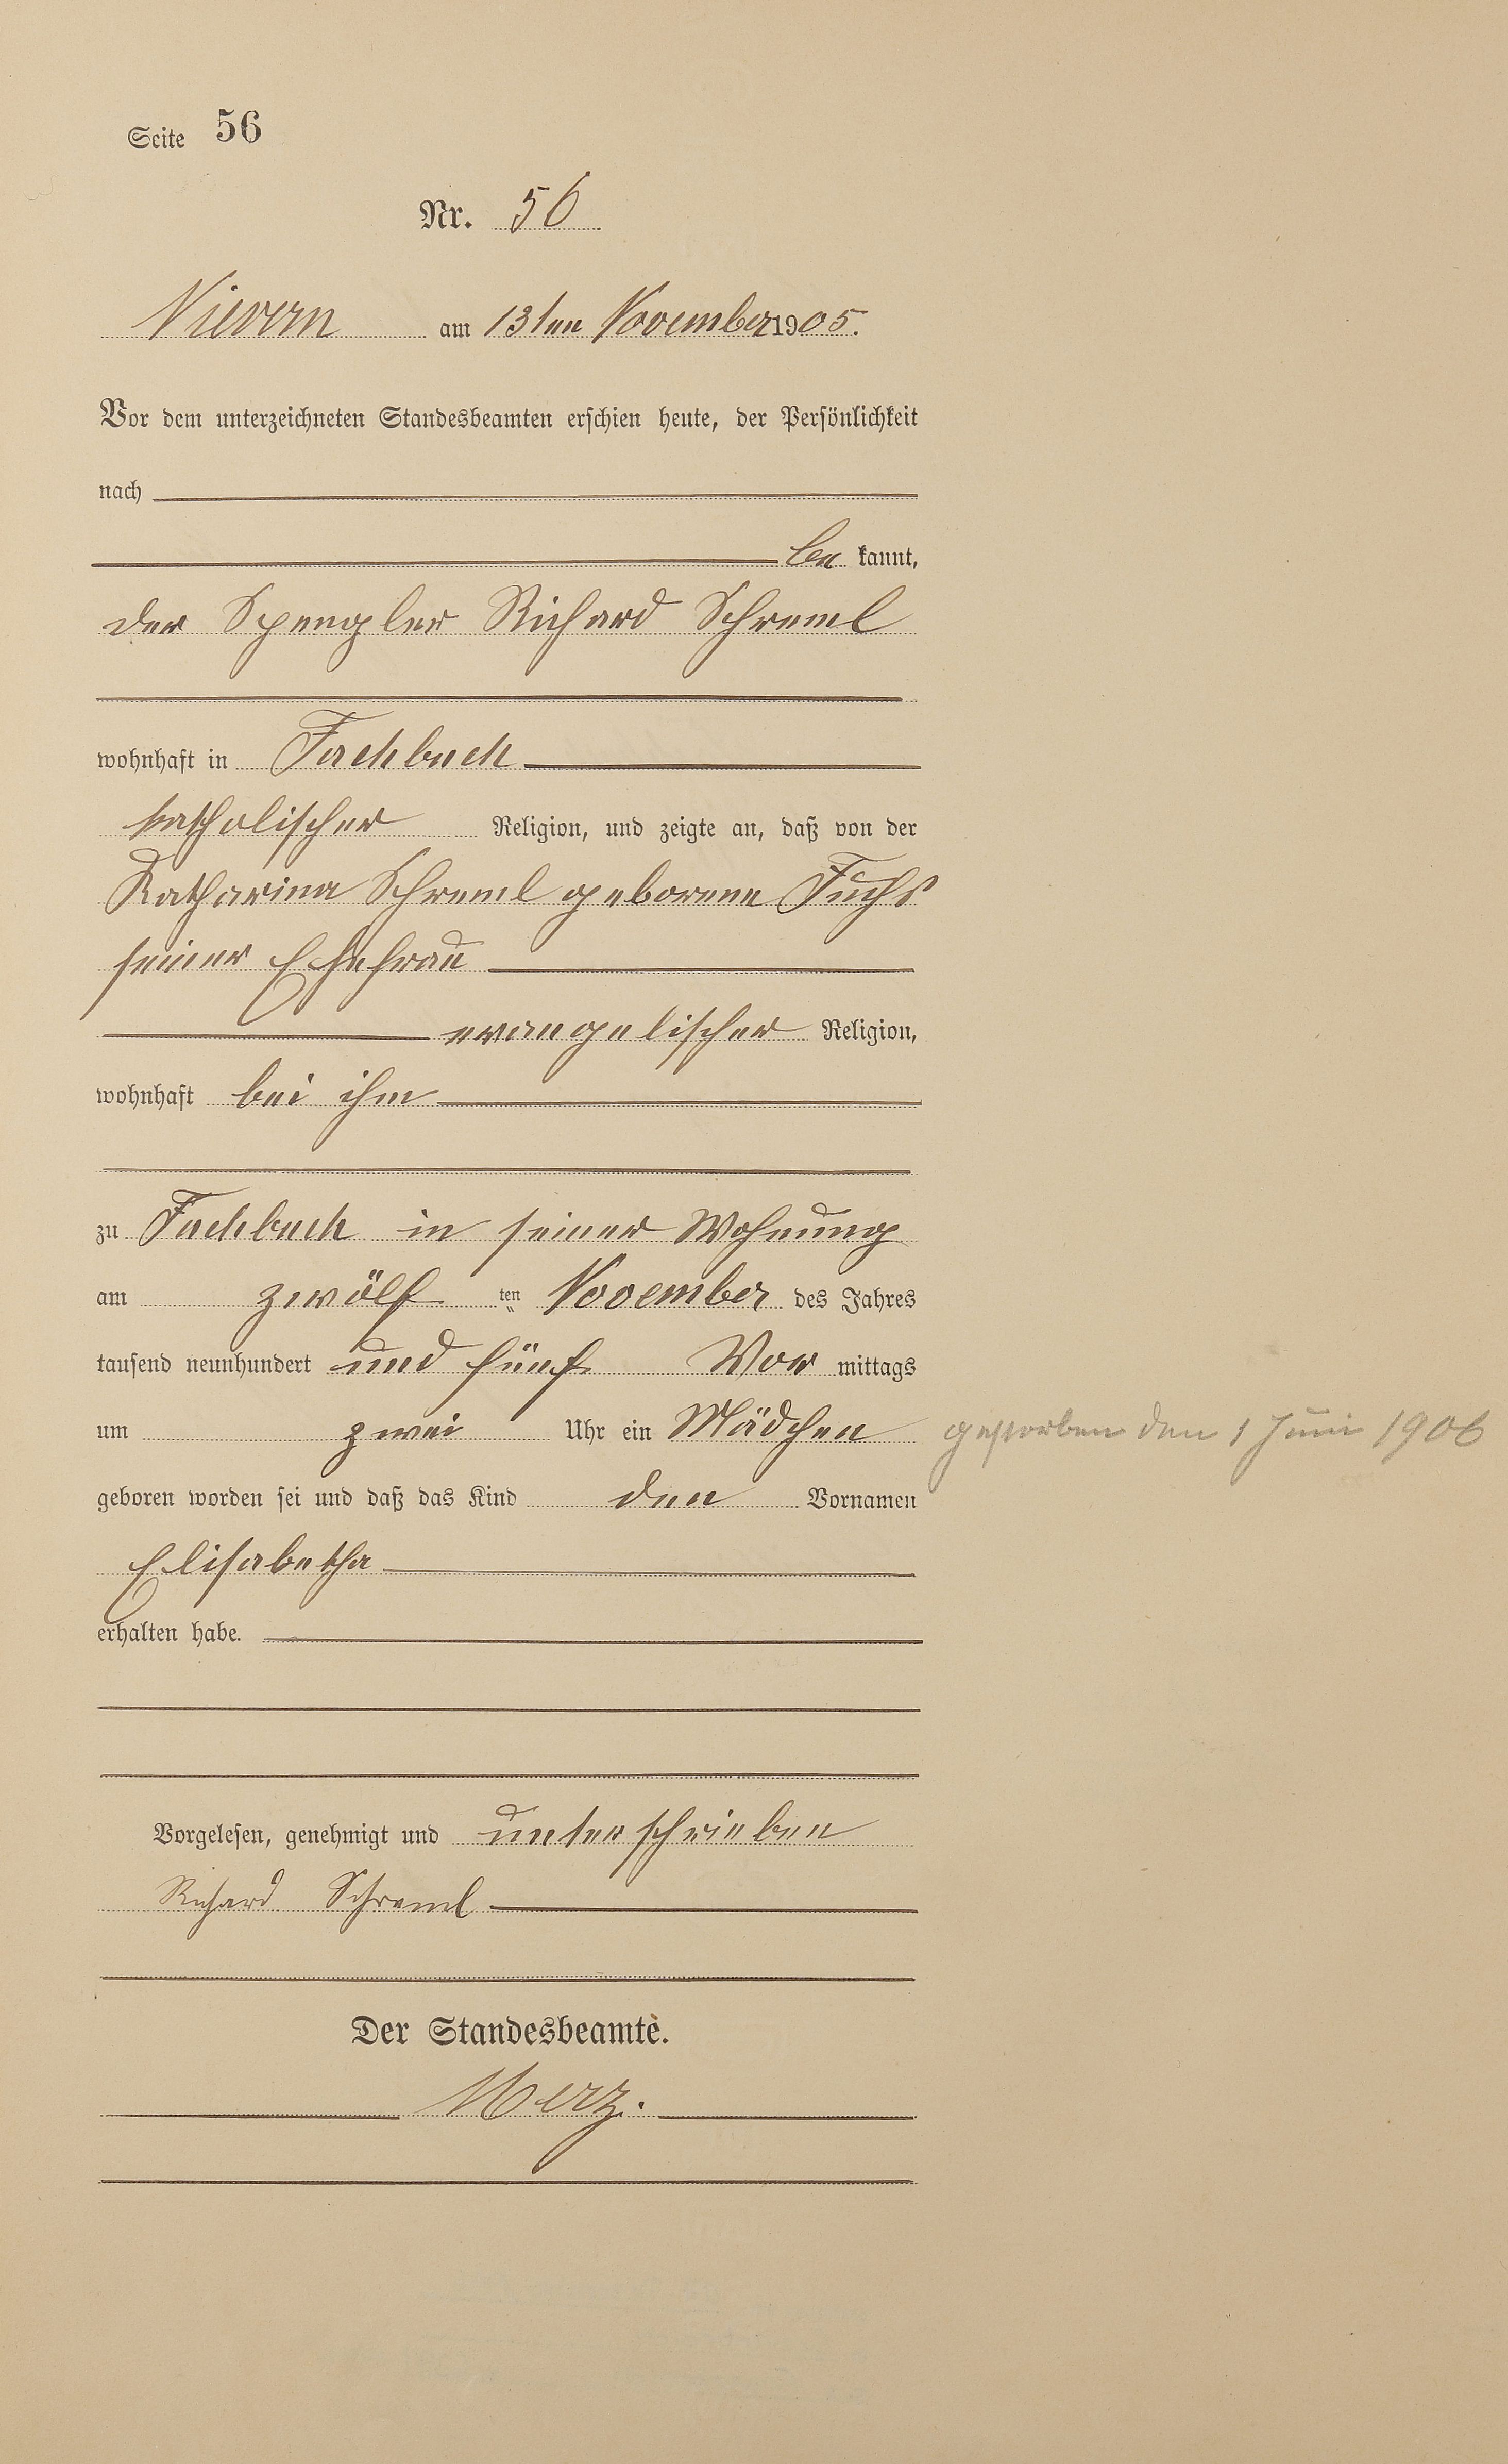 Seite 56
Nr. 56
Nievern am 13ten November 1905.
Vor dem unterzeichneten Standesbeamten erschien heute, der Persönlichkeit
nach
be kannt,
der Spengler Richard Schreml
wohnhaft in Fachbach
katholischer Religion, und zeigte an, daß von der
Katharina Schreml geborene Fuchs
seiner Ehefrau
evangelischer Religion,
wohnhaft bei ihm
zu Fachbach in seiner Wohnung
am zwölf ten November des Jahres
tausend neunhundert und fünf Vor mittags
um zwei Uhr ein Mädchen gestorben den 1 Juni 1906
geboren worden sei und daß das Kind den Vornamen
Elisabetha
erhalten habe.
Vorgelesen, genehmigt und unterschrieben
Richard Schreml
Der Standesbeamte.
Merz.